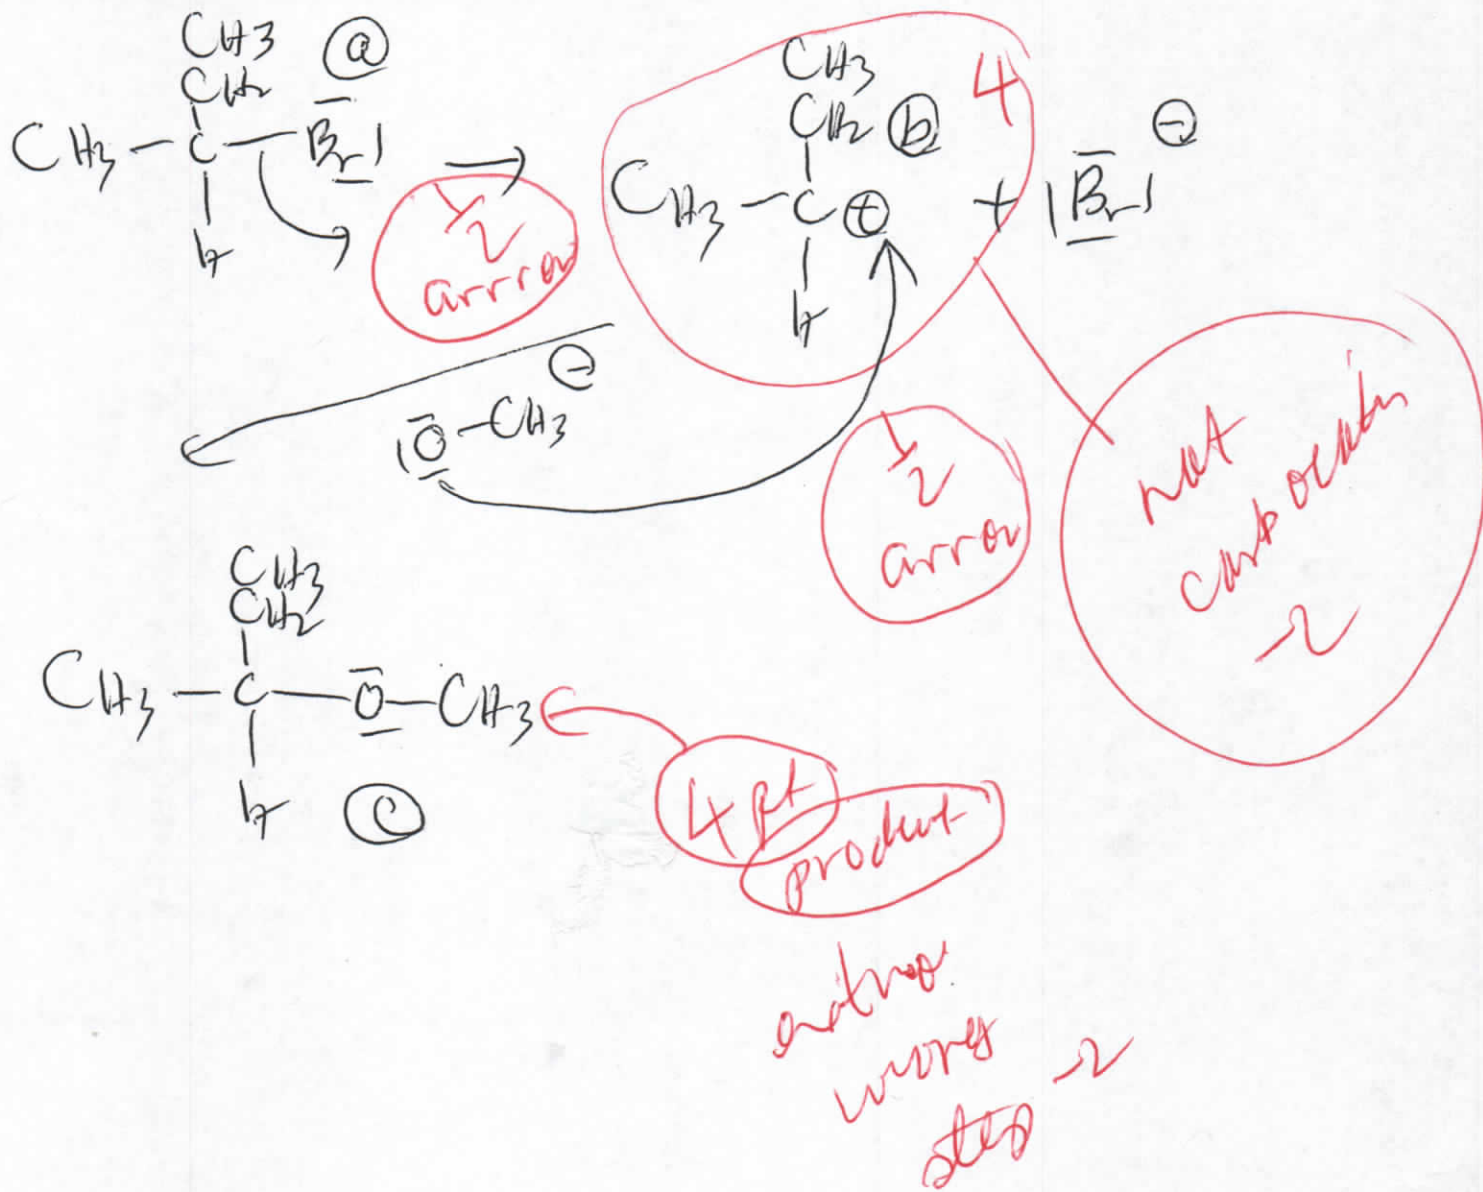 CH3 ⓐ
CH2
CH3 - C - Br
H
→
1/2
arrrow
CH3 4
CH2 ⓑ
CH3 - C ⊕ + Br ⊖
H
⊖
O - CH3
1/2
arrow
not
-2
CH3
CH2
CH3 - C - O - CH3
H ⓒ
4 pt
product
wrong
step -2